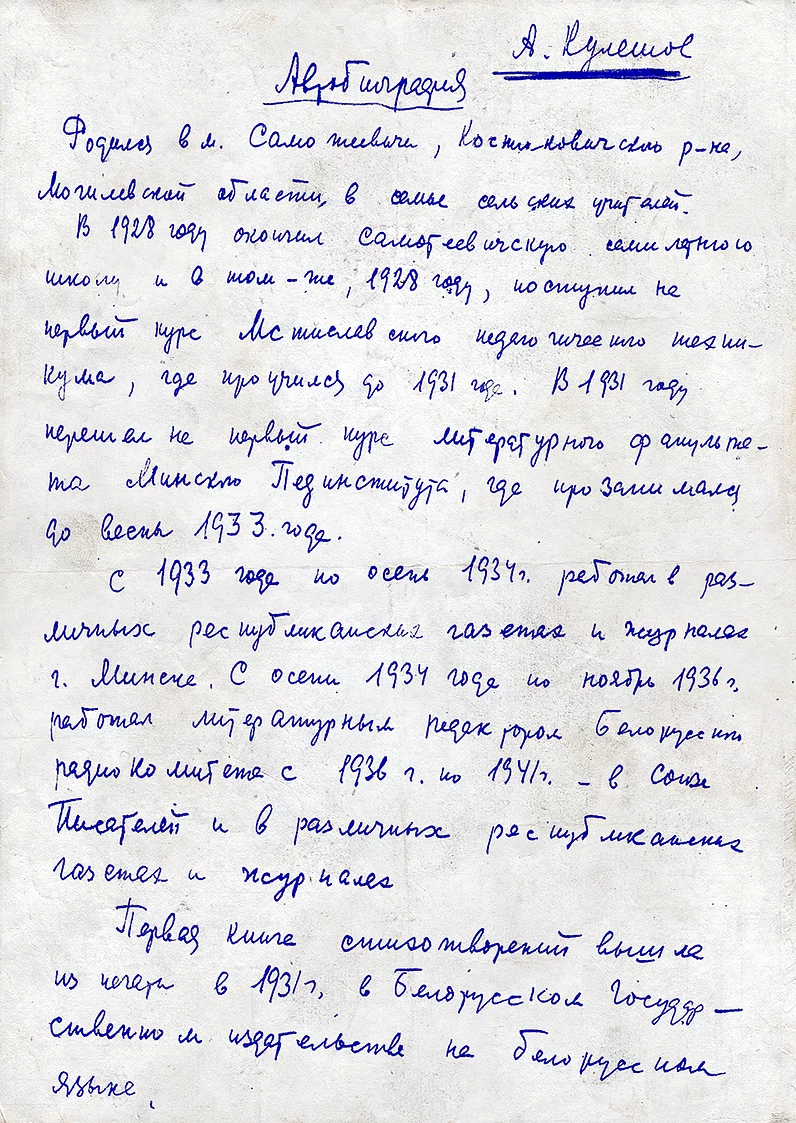 А. Кулешов
Автобиография
Родился в м. Самотеевичи, Костюковичского р-на,
Могилевской области, в семье сельских учителей.
В 1928 году окончил Самотеевичскую семилетнюю
школу и в том-же, 1928 году, поступил на
первый курс Мстиславского педагогического техни-
кума, где проучился до 1931 года. В 1931 году
перешел на первый курс литературного факульте-
та Минского Пединститута, где прозанимался
до весны 1933 года.
С 1933 года по осень 1934 г. работал в раз-
личных республиканских газетах и журналах
г. Минска. С осени 1934 года по ноябрь 1936 г.
работал литературным редактором Белорусского
радиокомитета с 1936 г. по 1941 г. – в Союзе
Писателей и в различных республиканских
газетах и журналах
Первая книга стихотворений вышла
из печати в 1931 г. в Белорусском Государ-
ственном издательстве на белорусском
языке.